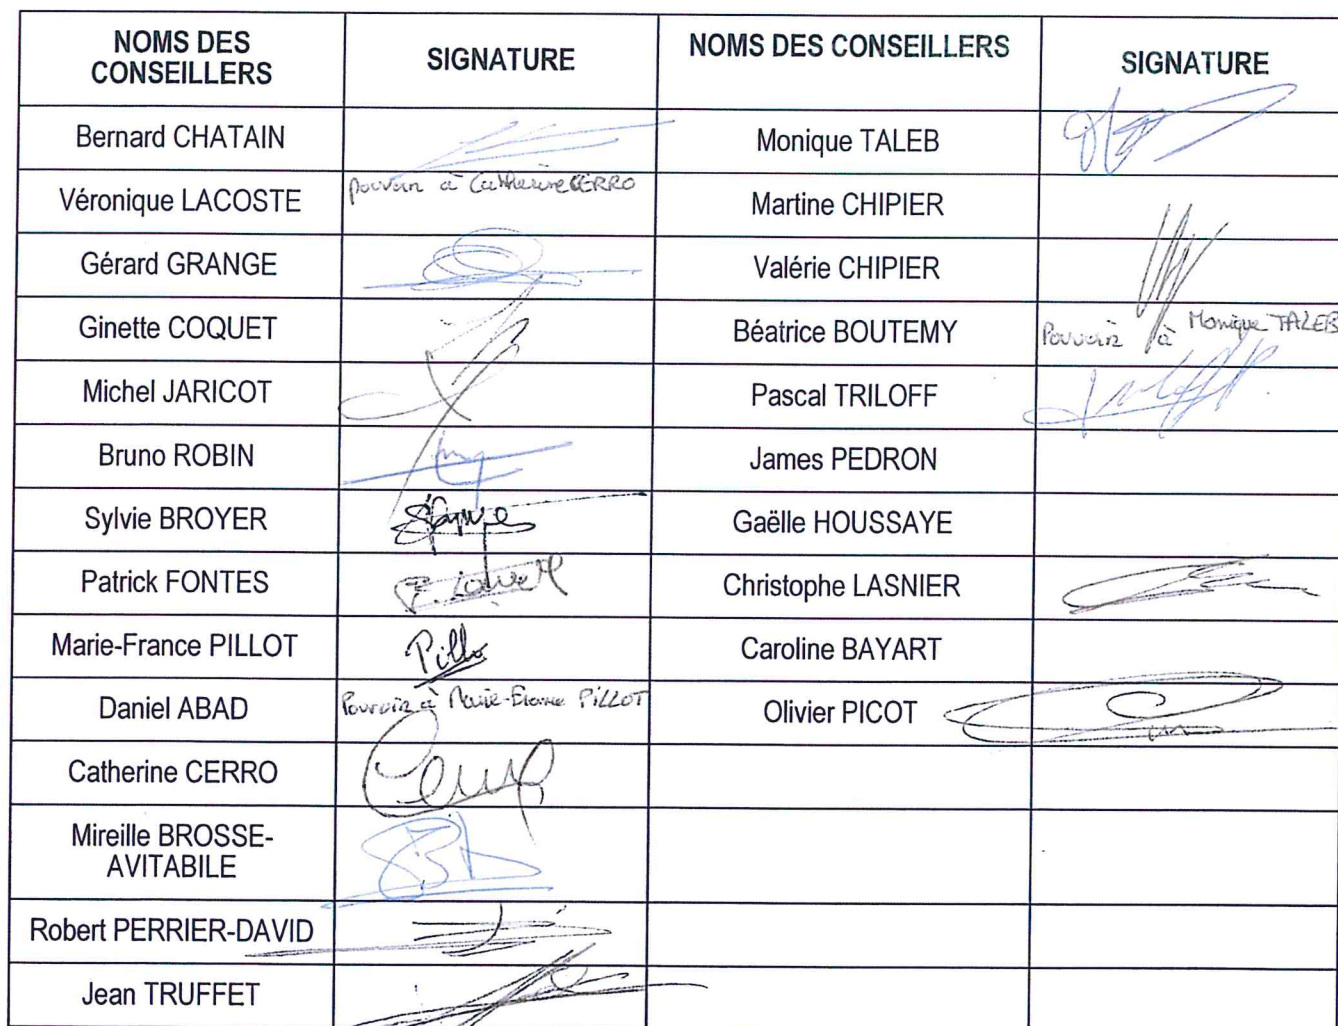 NOMS DES CONSEILLERS SIGNATURE NOMS DES CONSEILLERS SIGNATURE
Bernard CHATAIN Monique TALEB
Véronique LACOSTE pouvoir à Catherine CERRO Martine CHIPIER
Gérard GRANGE Valérie CHIPIER
Ginette COQUET Béatrice BOUTEMY Pouvoir à Monique TALEB
Michel JARICOT Pascal TRILOFF
Bruno ROBIN James PEDRON
Sylvie BROYER Gaëlle HOUSSAYE
Patrick FONTES Christophe LASNIER
Marie-France PILLOT Caroline BAYART
Daniel ABAD Pouvoir à Marie-France PILLOT Olivier PICOT
Catherine CERRO
Mireille BROSSE-
AVITABILE
Robert PERRIER-DAVID
Jean TRUFFET